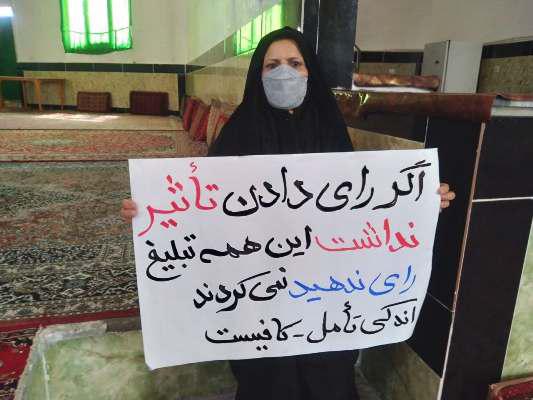 اگر رای دادن تأثیر
نداشت این همه تبلیغ
رای ندهید نمی کردند
اندکی تأمل - کافیست